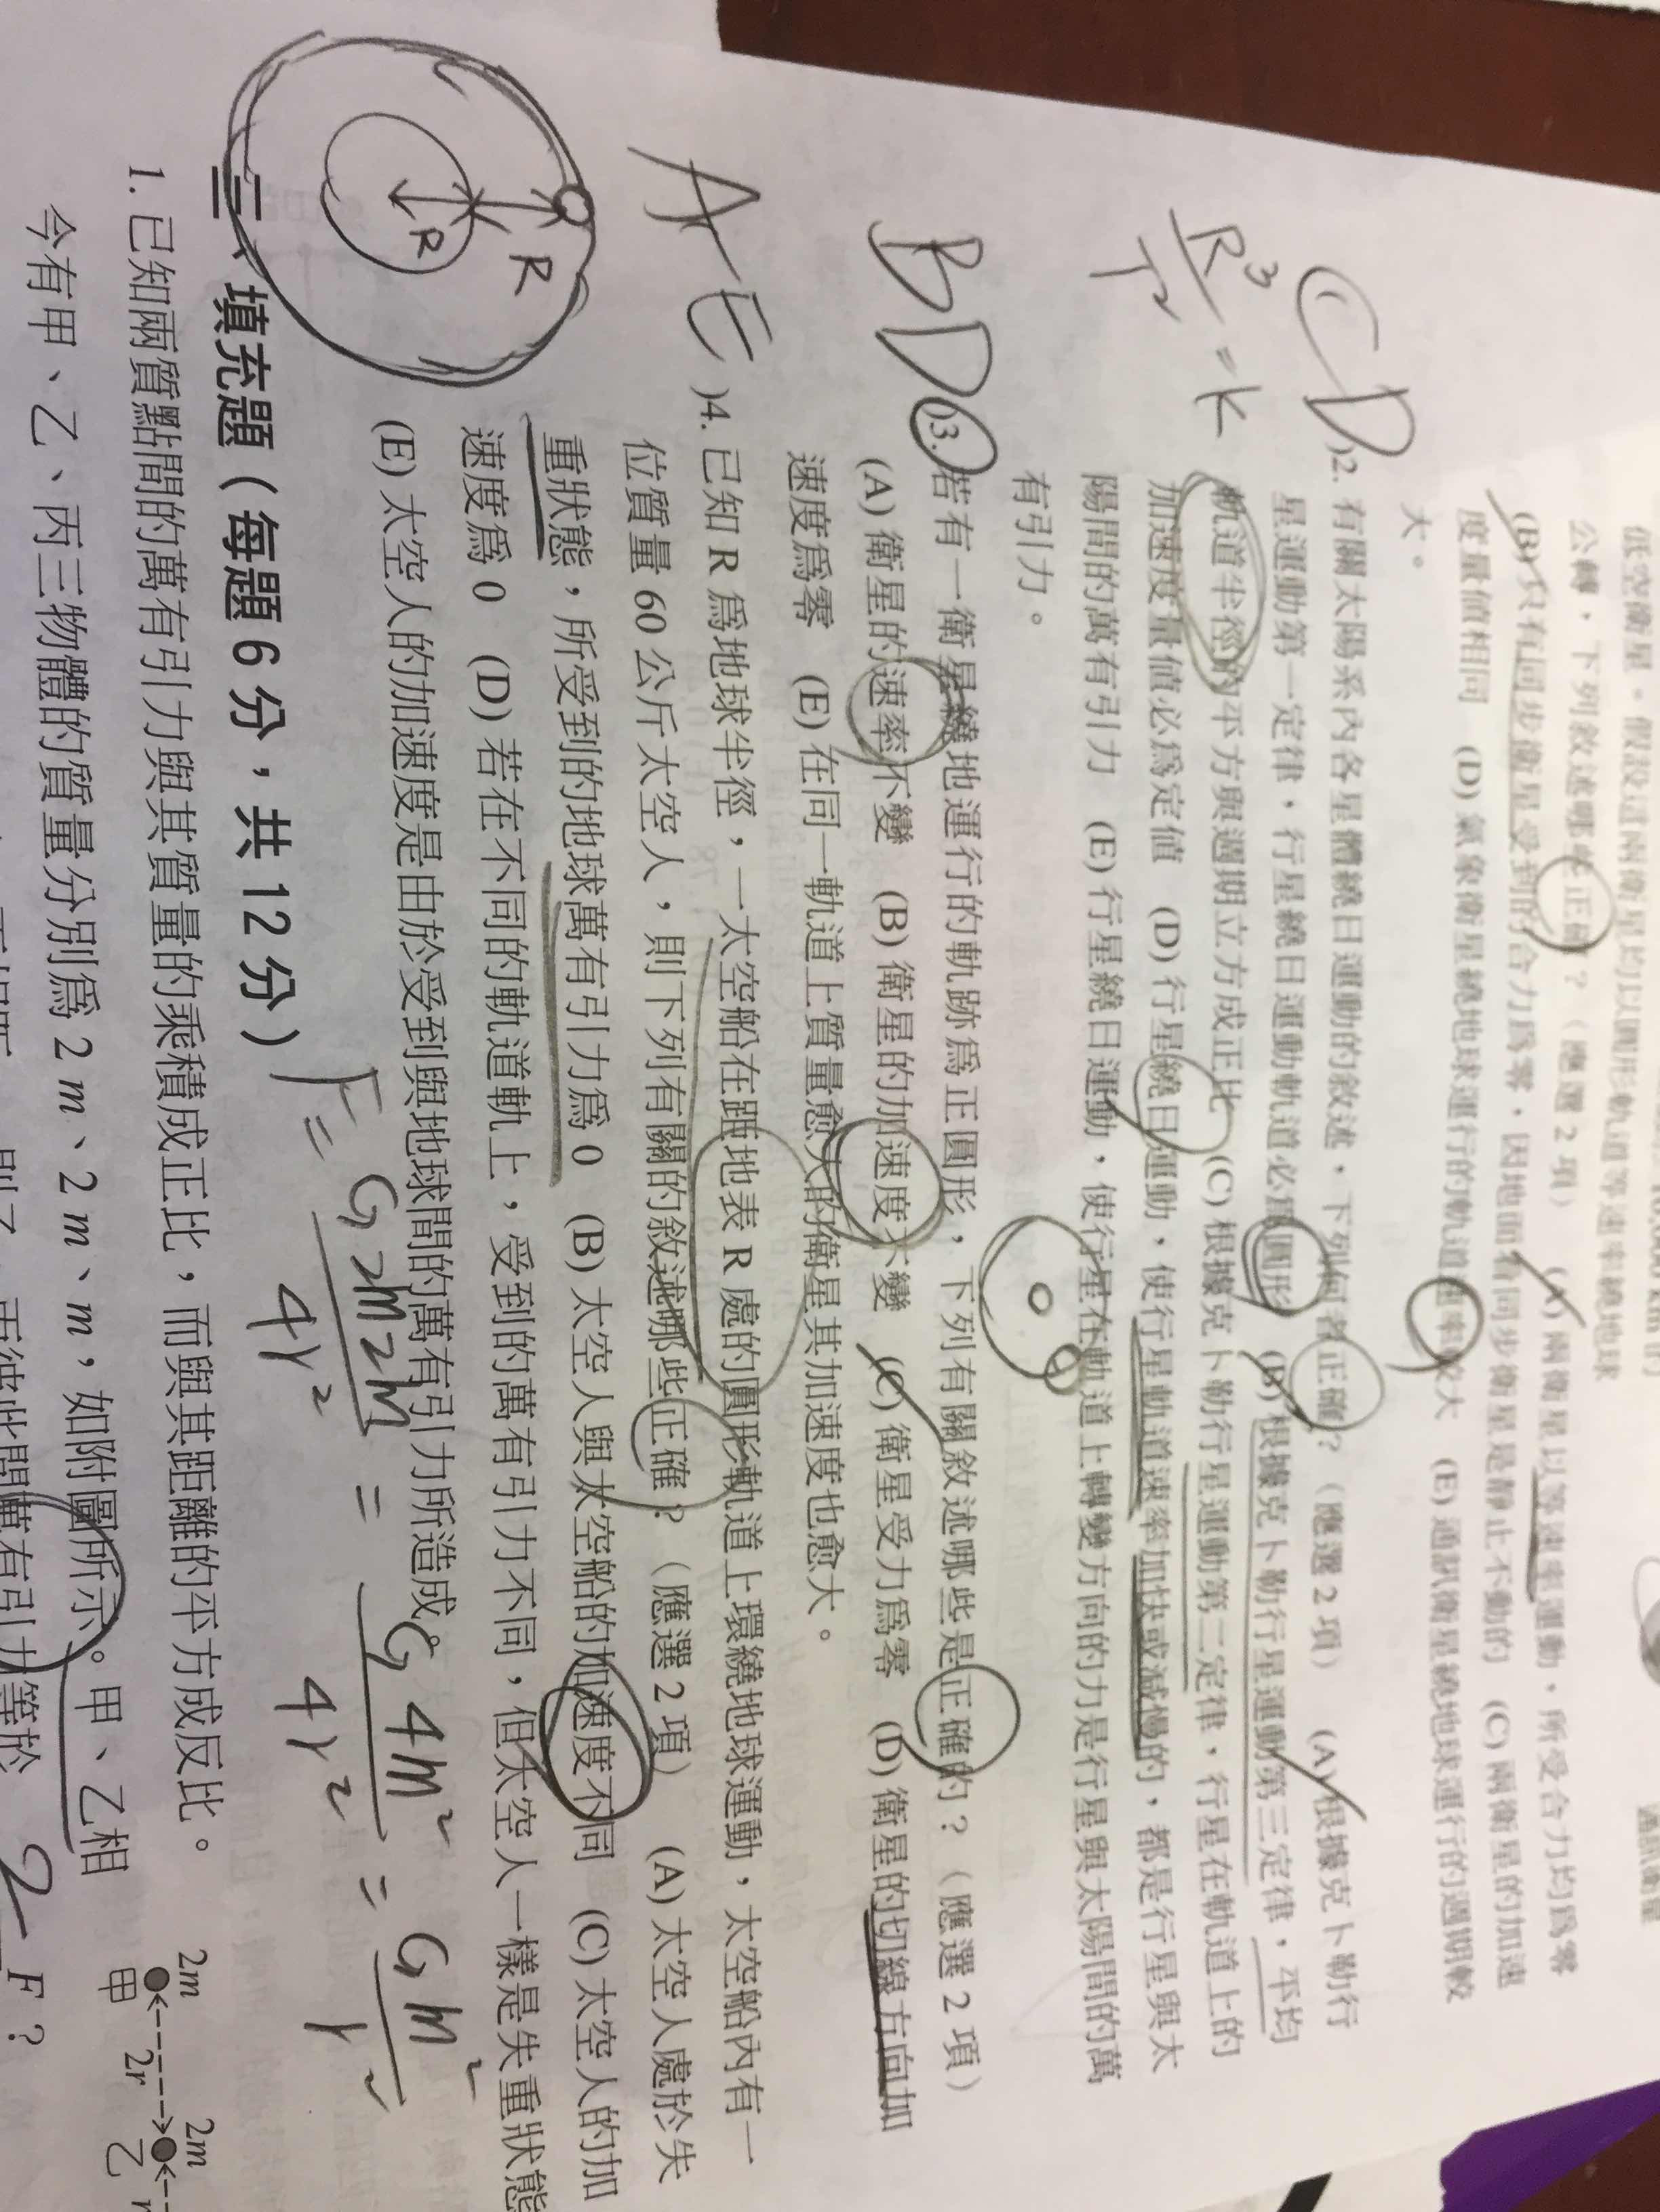 低空衛星。假設這兩衛星均以圓形軌道等速率繞地球
公轉,下列敘述哪些正確?(應選 2 項) (A) 兩衛星以等速率運動,所受合力均為零
(B) 只有同步衛星受到的合力為零,因地面看同步衛星是靜止不動的 (C) 兩衛星的加速
度量值相同 (D) 氣象衛星繞地球運行的軌道速率較大 (E) 通訊衛星繞地球運行的週期較
大。
CD
)2. 有關太陽系內各星體繞日運動的敘述,下列何者正確?(應選 2 項) (A) 根據克卜勒行
星運動第一定律,行星繞日運動軌道必為圓形 (B) 根據克卜勒行星運動第三定律,平均
軌道半徑的平方與週期立方成正比 (C) 根據克卜勒行星運動第二定律,行星在軌道上的
加速度量值必為定值 (D) 行星繞日運動,使行星軌道速率加快或減慢的,都是行星與太
陽間的萬有引力 (E) 行星繞日運動,使行星在軌道上轉變方向的力是行星與太陽間的萬
有引力。
R³/T² = k
BD
)3. 若有一衛星繞地運行的軌跡為正圓形,下列有關敘述哪些是正確的?(應選 2 項)
(A) 衛星的速率不變 (B) 衛星的加速度不變 (C) 衛星受力為零 (D) 衛星的切線方向加
速度為零 (E) 在同一軌道上質量愈大的衛星其加速度也愈大。
AE
)4. 已知 R 為地球半徑,一太空船在距地表 R 處的圓形軌道上環繞地球運動,太空船內有一
位質量 60 公斤太空人,則下列有關的敘述哪些正確?(應選 2 項) (A) 太空人處於失
重狀態,所受到的地球萬有引力為 0 (B) 太空人與太空船的加速度不同 (C) 太空人的加
速度為 0 (D) 若在不同的軌道軌上,受到的萬有引力不同,但太空人一樣是失重狀態
(E) 太空人的加速度是由於受到與地球間的萬有引力所造成。
R
R
三、填充題(每題 6 分,共 12 分)
F = G2m2m/4r² = G4m²/4r² = Gm²/r²
1. 已知兩質點間的萬有引力與其質量的乘積成正比,而與其距離的平方成反比。
今有甲、乙、丙三物體的質量分別為 2 m、2 m、m,如附圖所示。甲、乙相
2 F?
2m
2m
甲
2r
乙
r